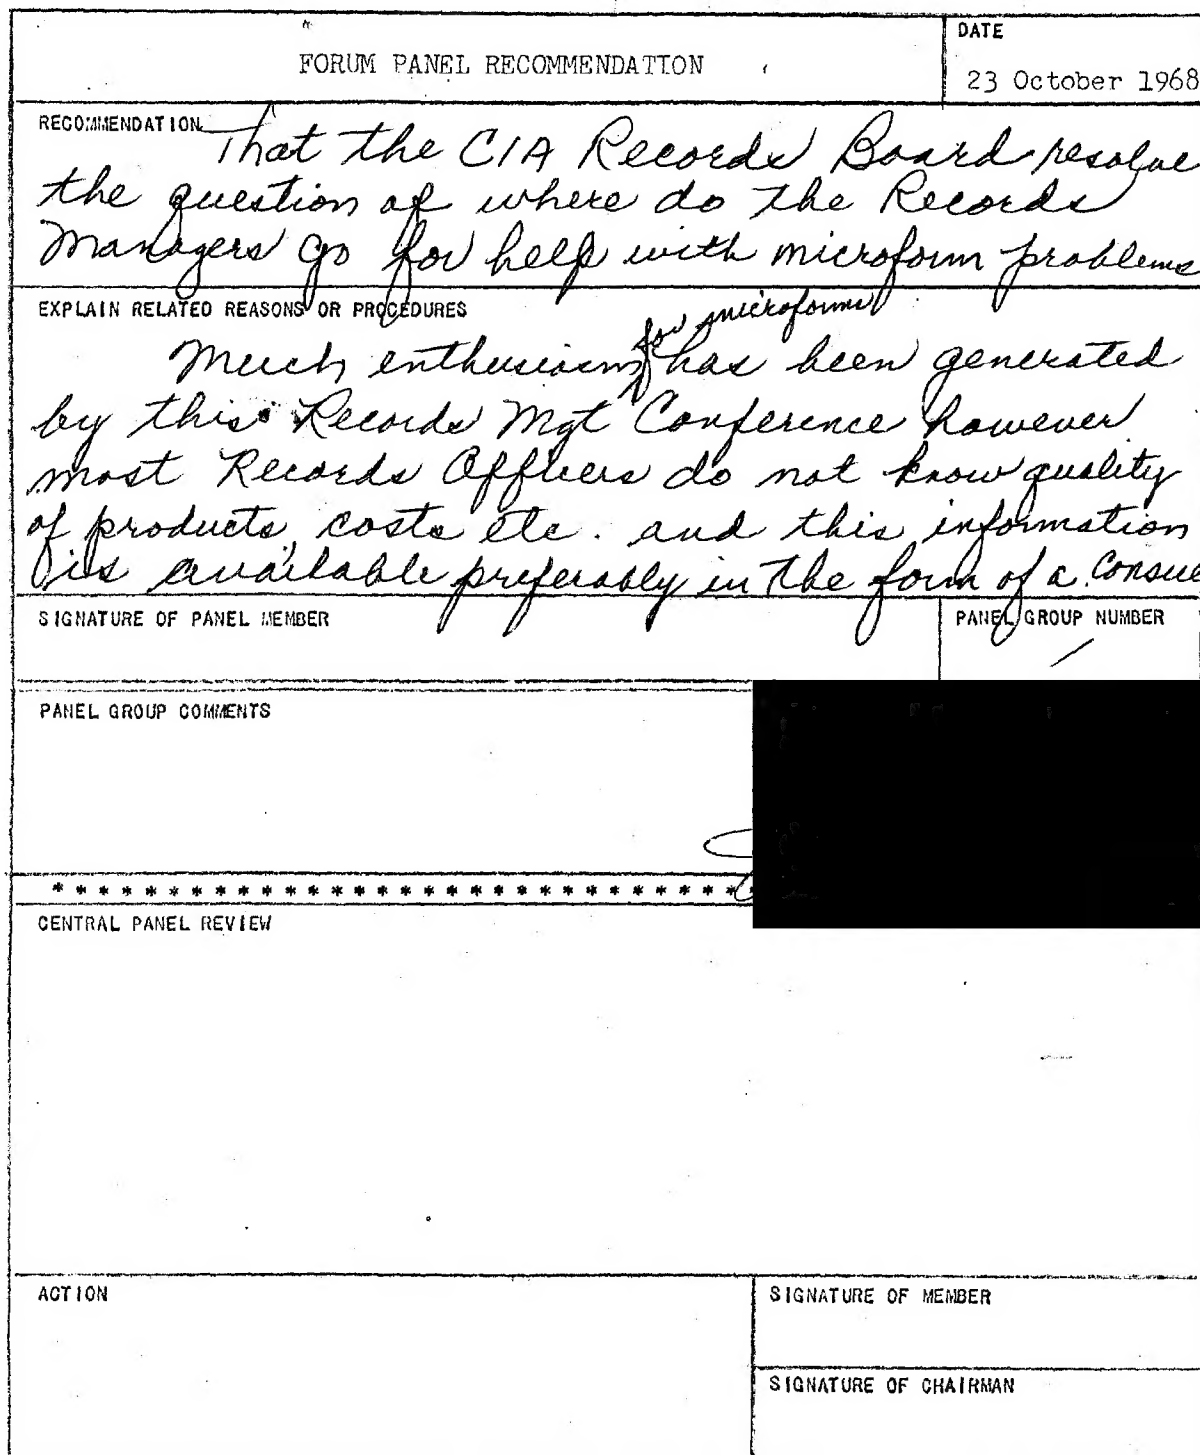 DATE
FORUM PANEL RECOMMENDATION
23 October 1968
RECOMMENDATION
That the CIA Records Board resolve
the question of where do the Records
Managers go for help with microform problems
EXPLAIN RELATED REASONS OR PROCEDURES
for microforms
Much enthusiasm has been generated
by this Records Mgt Conference however
most Records Officers do not know quality
of products, costs etc. and this information
is available preferably in the form of a
SIGNATURE OF PANEL MEMBER
PANEL GROUP NUMBER
1
PANEL GROUP COMMENTS
* * * * * * * * * * * * * * * * * * * * * * * * * * * * * *
CENTRAL PANEL REVIEW
ACTION
SIGNATURE OF MEMBER
SIGNATURE OF CHAIRMAN